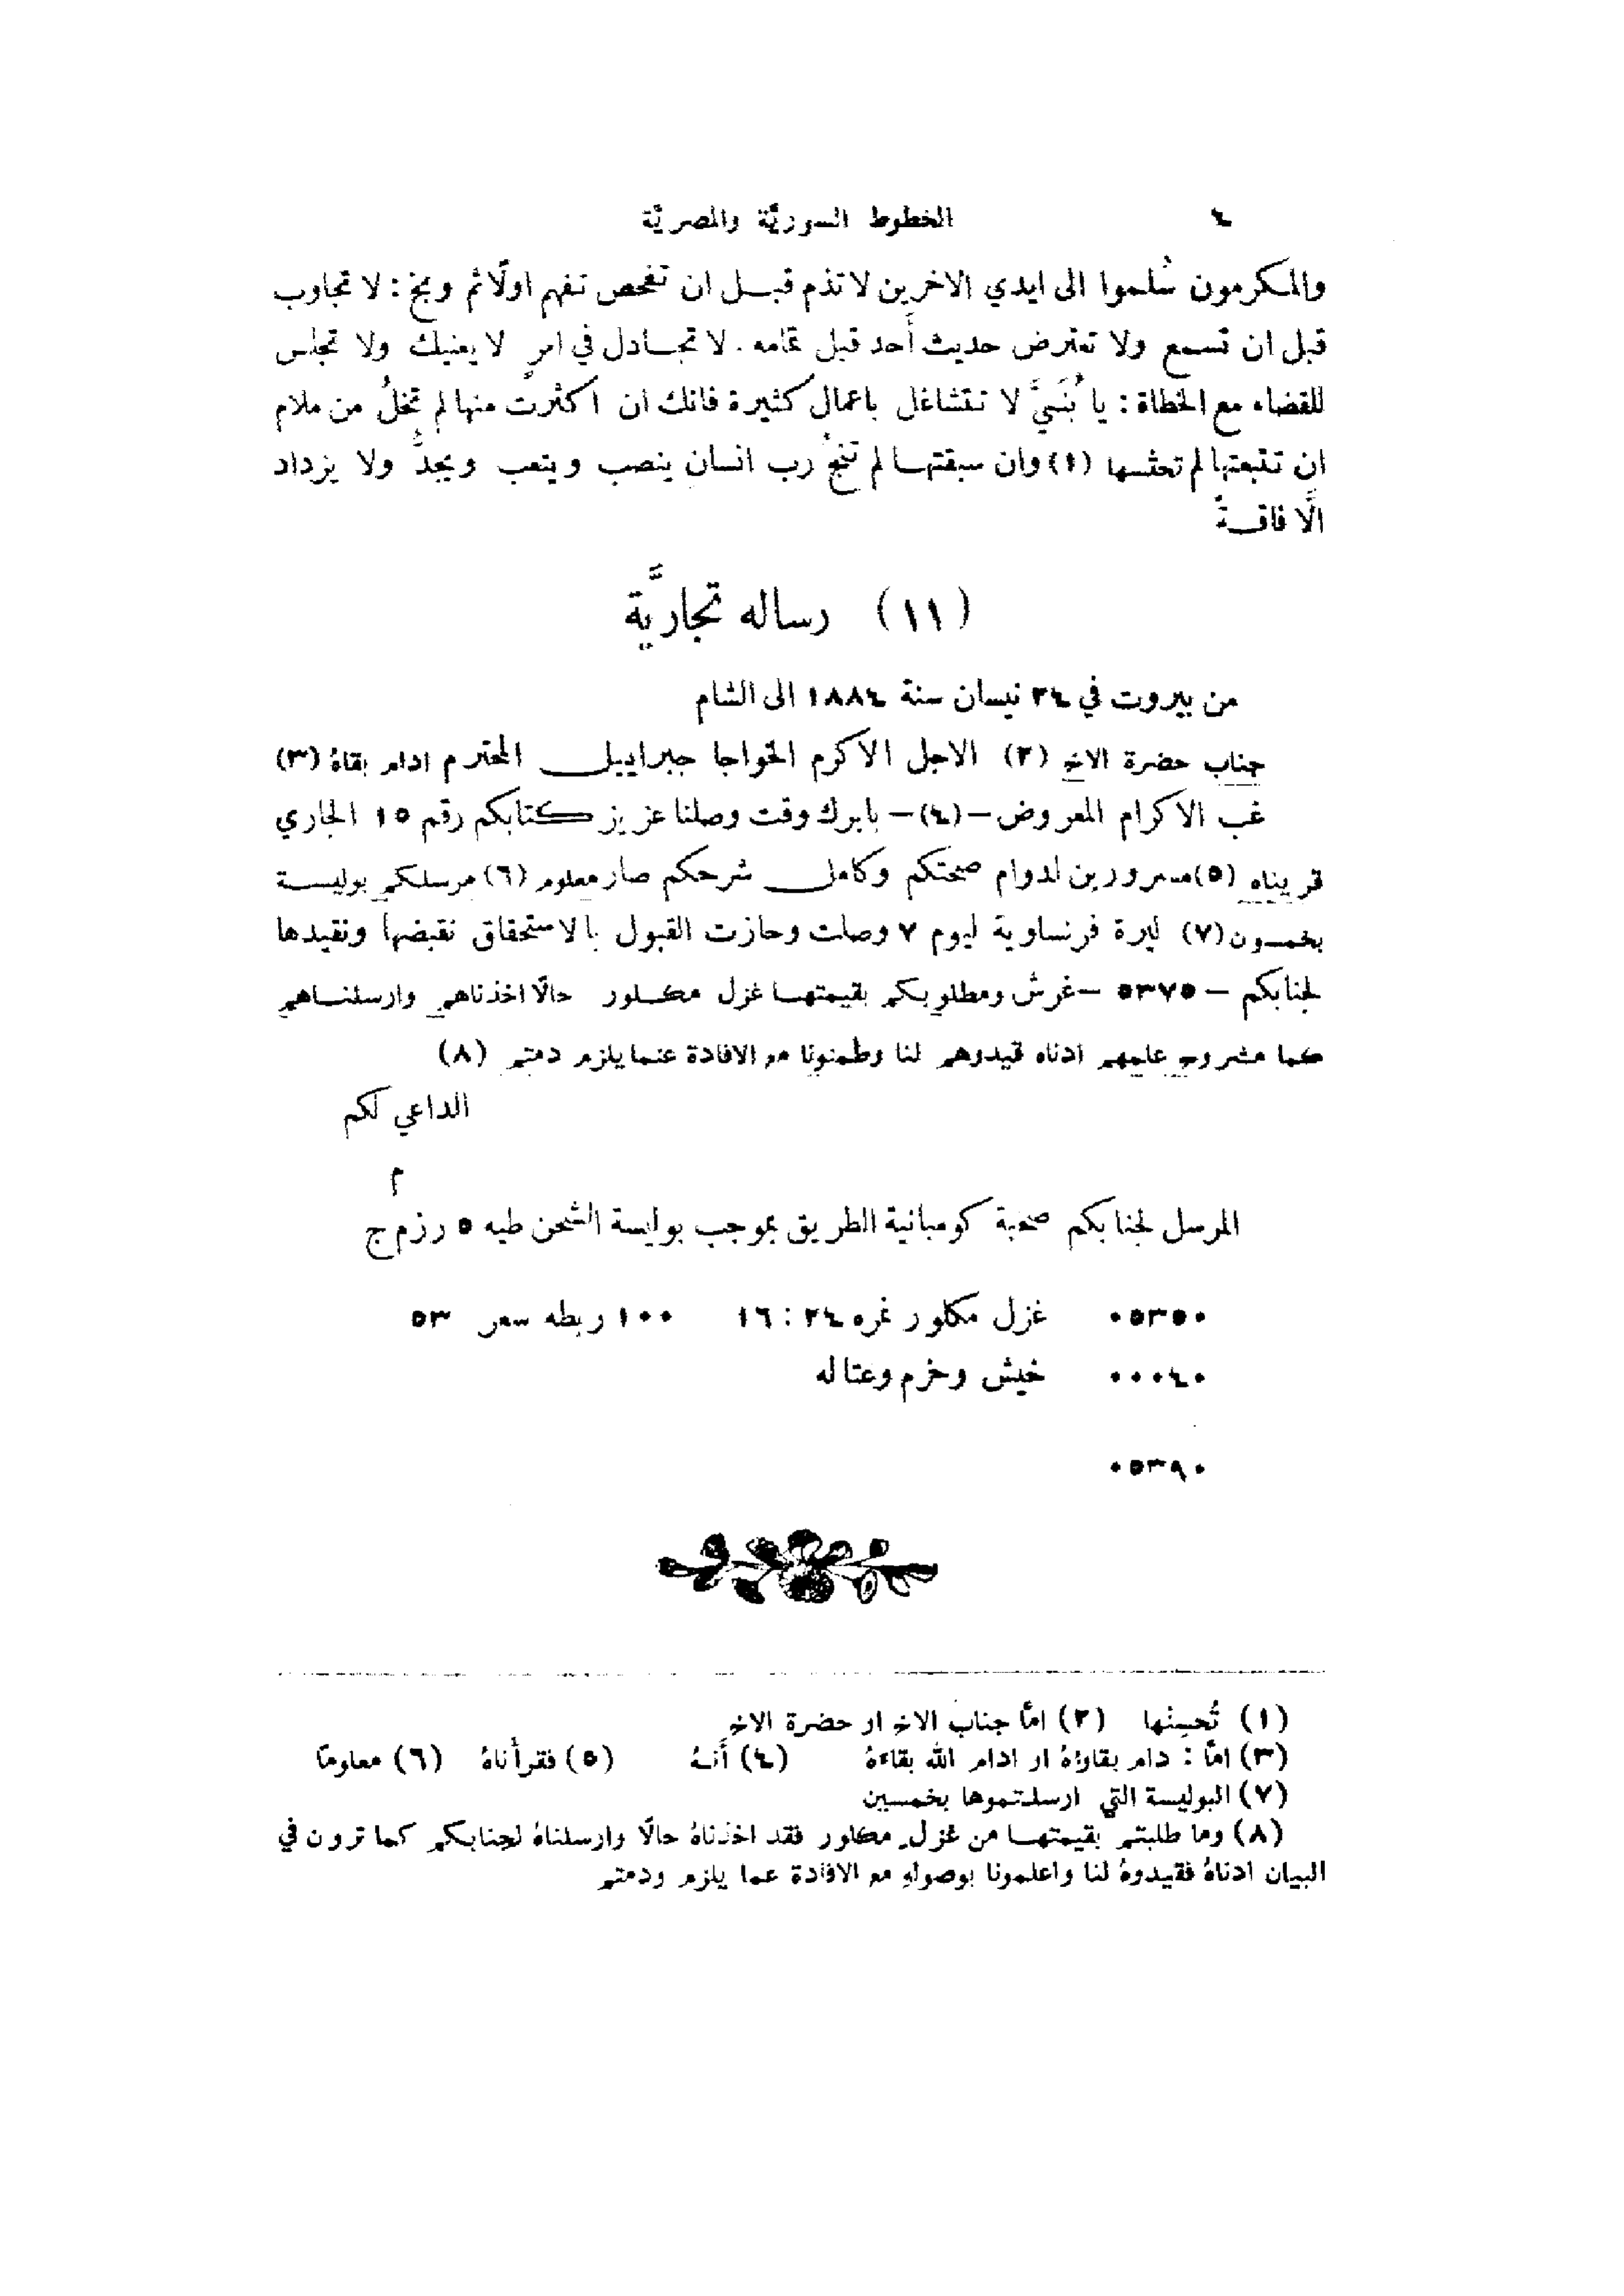 ٤ الخطوط السوريَّة والمصريَّة
والمكرمون سُلموا الى ايدي الاخرين لا تذم قبل ان تفحص تفهم اولًا ثم وبخ : لا تجاوب
قبل ان تسمع ولا تعترض حديث أَحد قبل تمامه . لا تجادل في امرٍ لا يعنيك ولا تجلس
للقضاء مع الخطاة : يا بُنَيَّ لا تتشاغل باعمال كثيرة فانك ان اكثرت منها لم تخلُ من ملام
ان تتبعتها لم تحثسها (١) وان سبقتها لم تنجُ رب انسان ينصب ويتعب ويجدُّ ولا يزداد
الَّا فاقةً
(١١) رساله تجاريَّة
من بيروت في ٢٤ نيسان سنة ١٨٨٤ الى الشام
جناب حضرة الاخ (٢) الاجل الاكرم الخواجا جبراييل المحترم ادام بقاهُ (٣)
غب الاكرام المعروض – (٤) – بابرك وقت وصلنا عزيز كتابكم رقم ١٥ الجاري
قريناه (٥) مسرورين لدوام صحتكم وكامل شرحكم صار معلوم (٦) مرسلكم بوليسة
بخمسون (٧) ليرة فرنساوية ليوم ٧ وصلت وحازت القبول بالاستحقاق نقبضها ونقيدها
لجنابكم – ٥٣٧٥ – غرش ومطلوبكم بقيمتها غزل مكلور حالًا اخذناهم وارسلناهم
كما مشروح عليهم ادناه قيدوهم لنا وطمنونا مع الافادة عنما يلزم دمتم (٨)
الداعي لكم
م
المرسل لجنابكم صحبة كومبانية الطريق بموجب بوليسة الشحن طيه ٥ رزم ج
٠٥٣٥٠ غزل مكلور نمره ٢٤ : ١٦ ١٠٠ ربطه سعر ٥٣
٠٠٠٤٠ خيش وخزم وعتاله
٠٥٣٩٠
(١) تُحسِنْها (٢) امَّا جناب الاخ او حضرة الاخ
(٣) امَّا : دام بقاؤهُ او ادام الله بقاءهُ (٤) أَنهُ (٥) فقرأناهُ (٦) معلومًا
(٧) البوليسة التي ارسلتموها بخمسين
(٨) وما طلبتم بقيمتها من غزل مكلور فقد اخذناهُ حالًا وارسلناهُ لجنابكم كما ترون في
البيان ادناهُ فقيدوهُ لنا واعلمونا بوصولهِ مع الافادة عما يلزم ودمتم